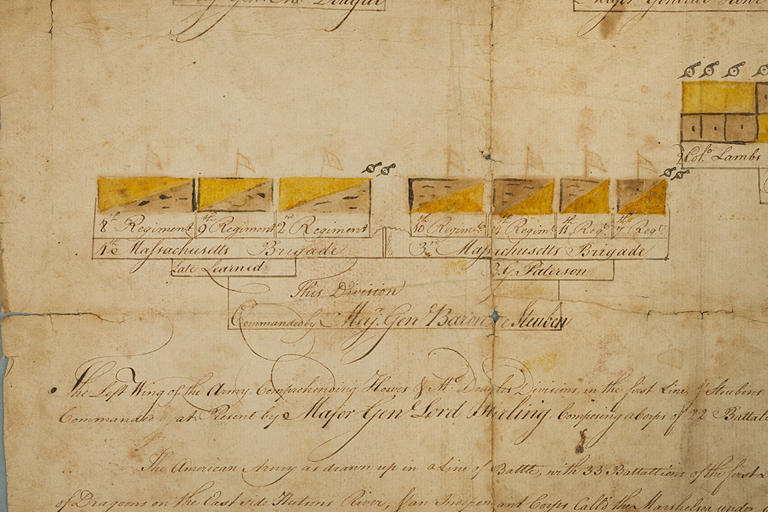 Major General
Colo. Lambs
8th Regiment 9th Regiment 2nd Regiment
10 Regimt Regimt 11 Regt 7 Regt
4th Massachusetts Brigade
3rd Massachusetts Brigade
Late Learned
B.G. Paterson
This Division
Commanded by Majr. Genl Baron De Steuben
The Left Wing of the Army Comprehending Howes & Divisions, in the first Line, & Steubens
Commanded at Present by Major Genl. Lord Sterling, Composing a Corps of 22 Battali
The American Army as drawn up in a Line of Battle, with 33 Battaltions of the first L
of Dragoons on the East side Hutsons River, & an Independant Corps Call'd the under